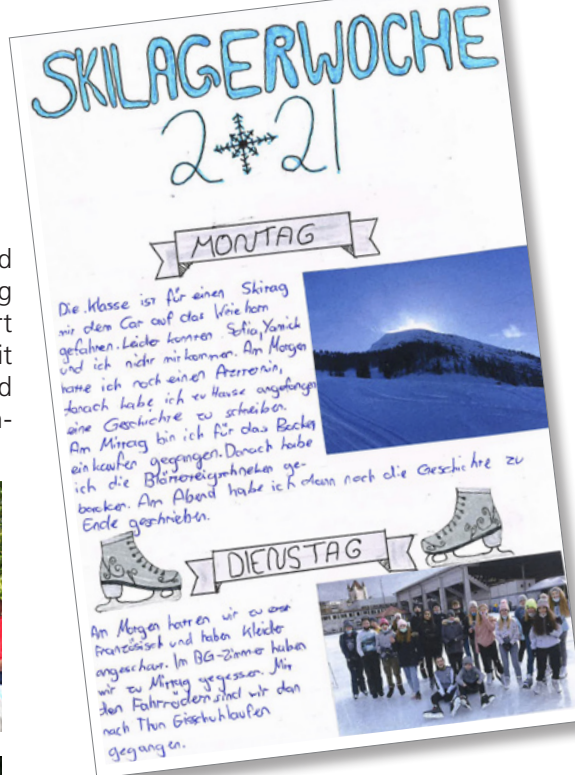 SKILAGERWOCHE
2021
MONTAG
Die Klasse ist für einen Skitag
mit dem Car auf das Wierihorn
gefahren. Leider konnten Sofia, Yanick
und ich nicht mitkommen. Am Morgen
hatte ich noch einen Arzttermin,
danach habe ich zu Hause angefangen
eine Geschichte zu schreiben.
Am Mittag bin ich für das Backen
einkaufen gegangen. Danach habe
ich die Blätterteigschneken ge-
backen. Am Abend habe ich dann noch die Geschichte zu
Ende geschrieben.
DIENSTAG
Am Morgen hatten wir zu erst
Französisch und haben Kleider
angeschaut. Im BG-Zimmer haben
wir zu Mittag gegessen. Mit
den Fahrrädern sind wir dan
nach Thun Eisschuhlaufen
gegangen.